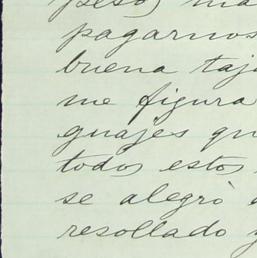 peso, ma
pagarnos
buena taja
me figura
guajes qu
todos estos
se alegrò
resollado y